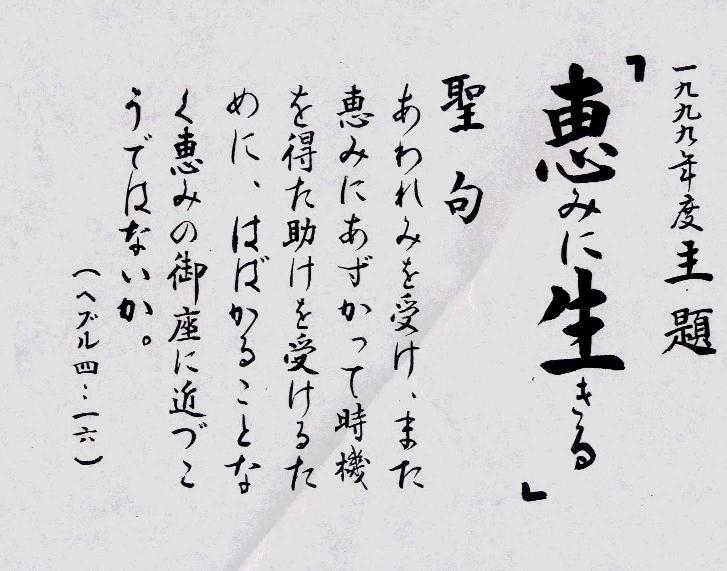 一九九九年度主題
「恵みに生きる」
聖句
あわれみを受け、また
恵みにあずかって時機
を得た助けを受けるた
めに、はばかることな
く恵みの御座に近づこ
うではないか。
（ヘブル四：一六）